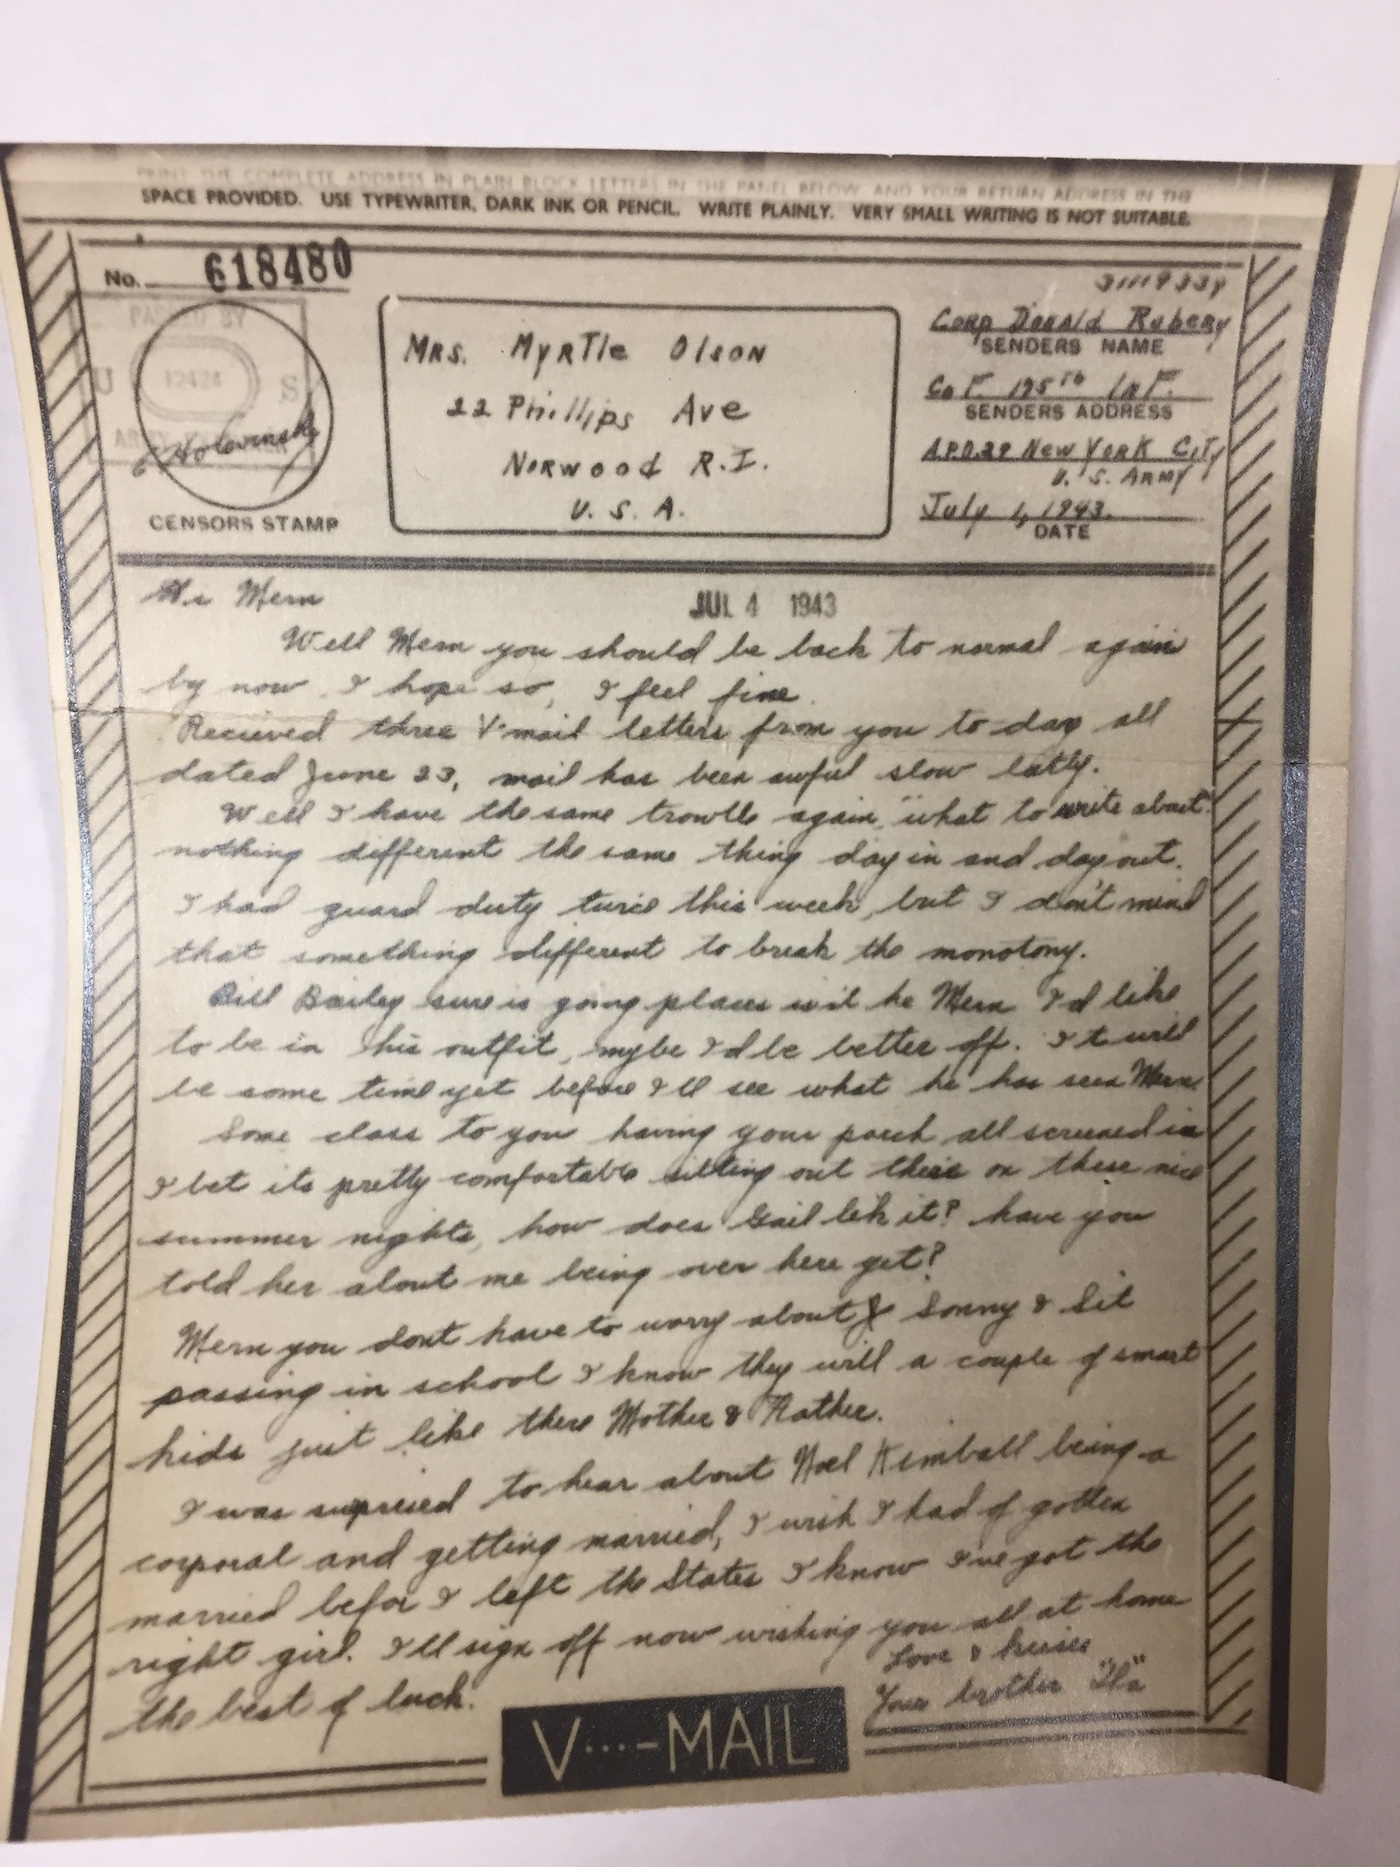 PRINT THE COMPLETE ADDRESS IN PLAIN BLOCK LETTERS IN THE PANEL BELOW, AND YOUR RETURN ADDRESS IN THE
SPACE PROVIDED. USE TYPEWRITER, DARK INK OR PENCIL. WRITE PLAINLY. VERY SMALL WRITING IS NOT SUITABLE.
No. 618480
PASSED BY
U 12424 S
ARMY
CENSORS STAMP
Mrs. Myrtle Olson
22 Phillips Ave
Norwood R.I.
U. S. A.
31119334
Corp Donald Rubery
SENDERS NAME
Co F. 125th Inf.
SENDERS ADDRESS
A.P.O. 29 New York City
U. S. Army
July 1, 1943.
DATE
JUL 4 1943
Hi Mern
Well Mern you should be back to normal again
by now I hope so, I feel fine.
Recieved three V-mail letters from you to day all
dated June 23, mail has been awful slow latly.
Well I have the same trowble again, "what to write about"
nothing different the same thing day in and day out.
I had guard duty twice this week, but I don't mind
that something different to break the monotony.
Bill Bailey sure is going places isnt he Mern I'd like
to be in his outfit, mybe I'd be better off. It will
be some time yet before I'll see what he has seen Mern
Some class to you having your porch all screened in
I bet its pretty comfortable sitting out there on these nice
summer nights, how does Gail lik it? have you
told her about me being over here yet?
Mern you dont have to worry about Sonny & Sit
passing in school I know they will a couple of smart
kids just like there Mother & Father.
I was suprised to hear about Noel Kimball being a
corporal and getting married, I wish I had of gotten
married befor I left the States I know I've got the
right girl. I'll sign off now wishing you all at home
the best of luck.
Love & kisses
Your brother
V···—MAIL